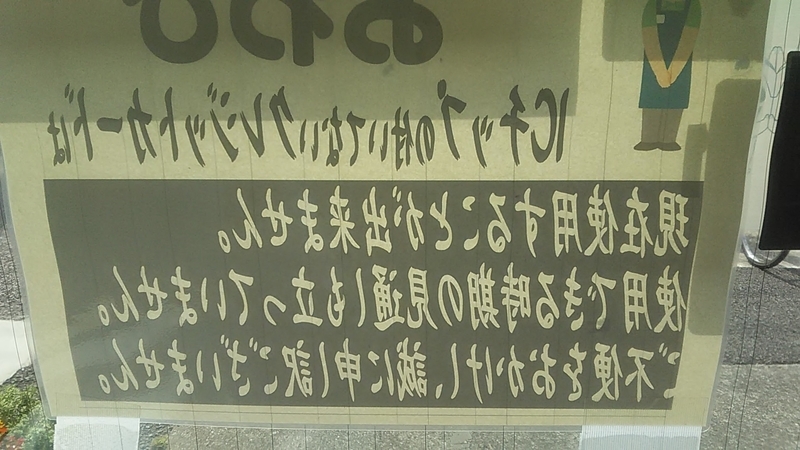 おわび
ICチップの付いてないクレジットカードは
現在使用することが出来ません。
使用できる時期の見通しも立っていません。
ご不便をおかけし、誠に申し訳ございません。